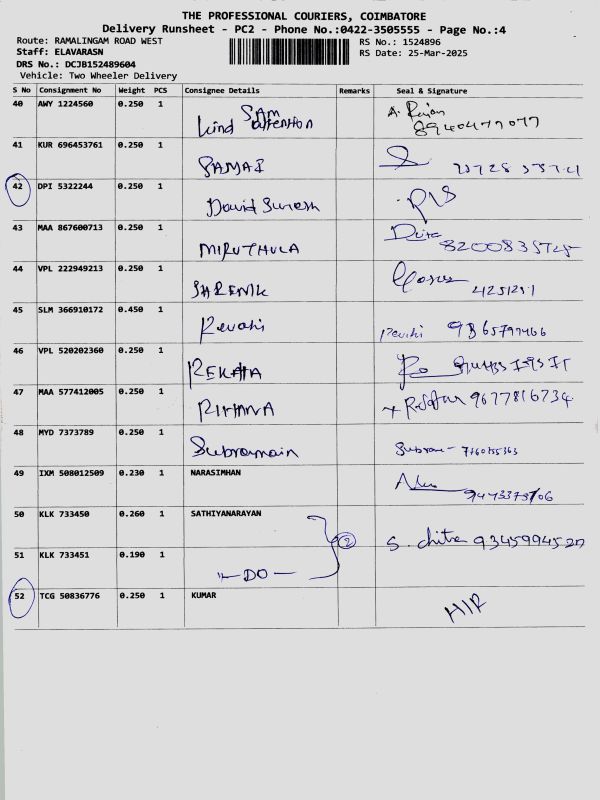 THE PROFESSIONAL COURIERS, COIMBATORE
Delivery Runsheet - PC2 - Phone No.:0422-3505555 - Page No.:4
Route: RAMALINGAM ROAD WEST RS No.: 1524896
Staff: ELAVARASN RS Date: 25-Mar-2025
DRS No.: DCJB152489604
Vehicle: Two Wheeler Delivery
S No Consignment No Weight PCS Consignee Details Remarks Seal & Signature
40 AWY 1224560 0.250 1 Kind SAM attention
8940477077
41 KUR 696453761 0.250 1
42 DPI 5322244 0.250 1 David Suresh
43 MAA 867600713 0.250 1 MIRUTHULA
44 VPL 222949213 0.250 1 SHRENIK
45 SLM 366910172 0.450 1 Revathi
46 VPL 520202360 0.250 1 REKHA
47 MAA 577412005 0.250 1 RIHANA 9677816734
48 MYD 7373789 0.250 1 Subramain
49 IXM 508012509 0.230 1 NARASIMHAN
50 KLK 733450 0.260 1 SATHIYANARAYAN 2 S. chitra
51 KLK 733451 0.190 1 - DO -
52 TCG 50836776 0.250 1 KUMAR